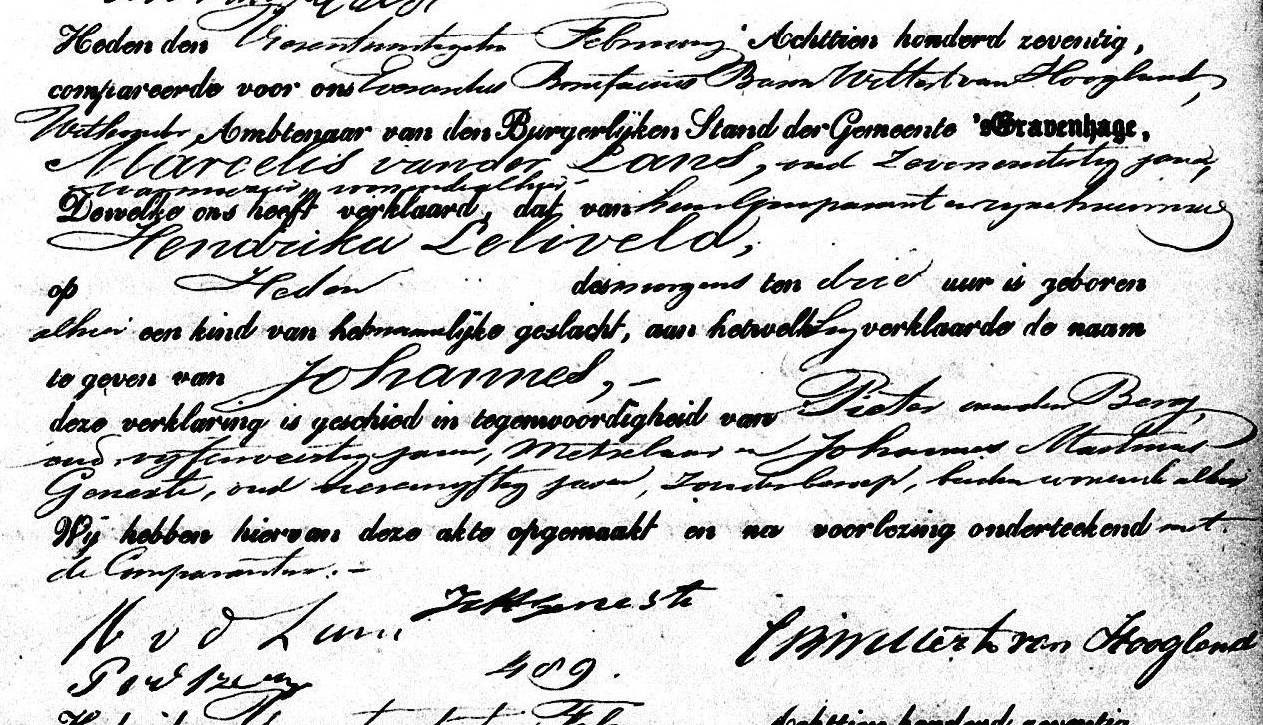 Heden den Vierentwintigsten Februarij Achttien honderd zeventig,
compareerde voor ons Everardus Bonifacius Baron Wittert van Hoogland,
Wethouder, Ambtenaar van den Burgerlijken Stand der Gemeente 'sGravenhage,
Marcelis van der Lans, oud zevenendertig jaren,
wonende alhier,-
Dewelke ons heeft verklaard, dat van hem Comparant en zijne huisvrouw
Hendrika Leliveld,
op Heden des morgens ten drie uur is geboren
alhier een kind van het mannelijke geslacht, aan hetwelk hij verklaarde de naam
te geven van Johannes,-
deze verklaring is geschied in tegenwoordigheid van Pieter van den Berg,
oud vijfenveertig jaren, Metselaar en Johannes Martinus
Geneste, oud jaren, zonder beroep, beiden wonende alhier
Wij hebben hiervan deze akte opgemaakt en na voorlezing onderteekend met
de Comparanten.-
M v d Lans JM Geneste
EB Wittert van Hoogland
P vd Berg 489.
Achttien honderd zeventig